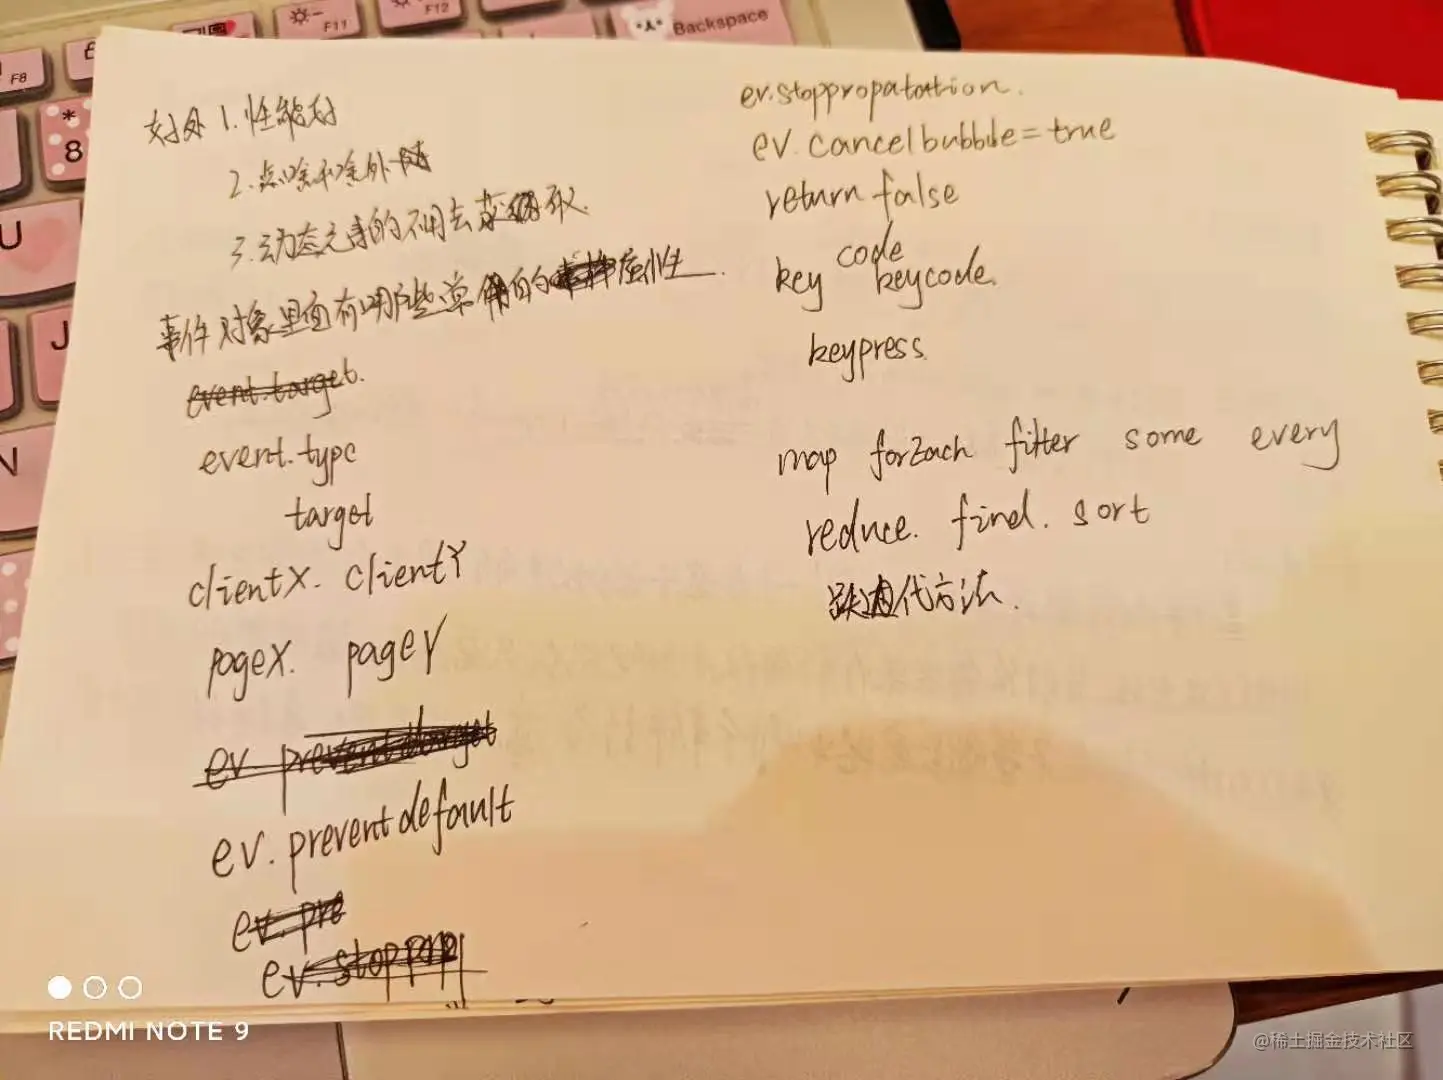 F8
F11
F12
Backspace
*
8
U
J
N
好处 1.性能好
2.点啥不啥外
3.动态元素的不用去获取.
事件对象里面有哪些常用的属性.
event.target.
event.type
target
clientX. clientY
pageX. pageY
ev.
ev.preventdefault
ev.pre
ev.stopprop
ev.stoppropatation.
ev.cancelbubble=true
return false
key code keycode.
keypress.
map forEach filter some every
reduce. find. sort
迭代方法.
REDMI NOTE 9
@稀土掘金技术社区